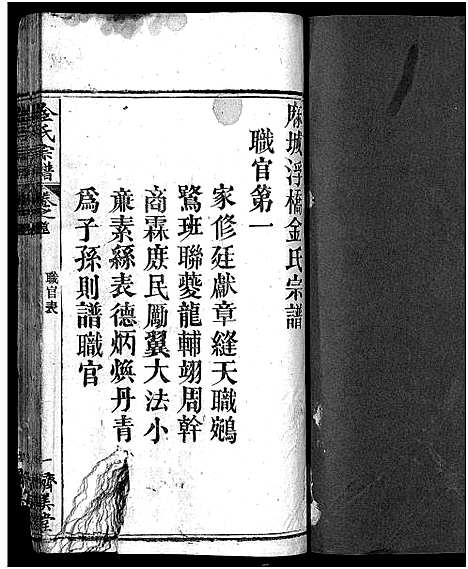 麻城浮橋金氏宗譜
職官第一
家修廷獻章縫天職鵷
鷺班聯夔龍輔翊周幹
商霖庶民勵翼大法小
廉素絲表德炳煥丹青
爲子孫則譜職官
金氏宗譜
職官表
一
濟美堂